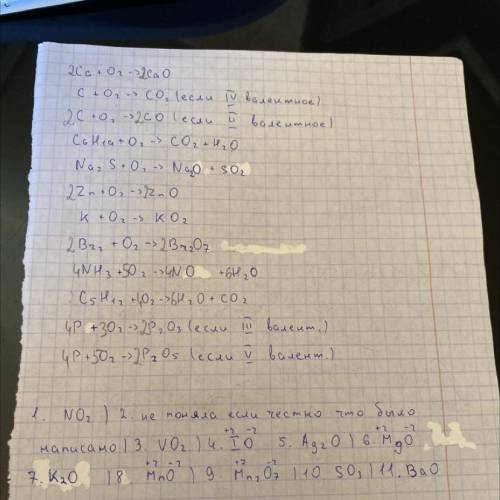 2Ca + O₂ → 2CaO
C + O₂ → CO₂ (если IV валентное)
2C + O₂ → 2CO (если II валентное)
C₆H₁₂ + O₂ → CO₂ + H₂O
Na₂S + O₂ → Na₂O + SO₂
2Zn + O₂ → 2ZnO
K + O₂ → KO₂
2Br₂ + O₂ → 2Br₂O₇
4NH₃ + 5O₂ → 4NO + 6H₂O
C₅H₁₂ + O₂ → 6H₂O + CO₂
4P + 3O₂ → 2P₂O₃ (если III валент.)
4P + 5O₂ → 2P₂O₅ (если V валент.)
1. NO₂ | 2. не поняла если честно что было
написано | 3. VO₂ | 4. I⁺²O⁻² 5. Ag₂O | 6. Mg⁺²O⁻²
7. K₂O | 8. Mn⁺²O⁻² | 9. Mn₂O₇⁻² | 10 SO₃ | 11. BaO